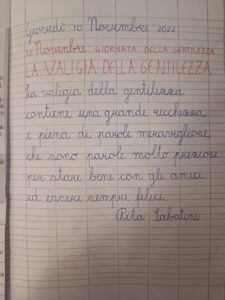 Giovedì 10 Novembre 2022
13 Novembre GIORNATA DELLA GENTILEZZA
LA VALIGIA DELLA GENTILEZZA
La valigia della gentilezza
contiene una grande ricchezza,
è piena di parole meravigliose
che sono parole molto preziose
per stare bene con gli amici
ed essere sempre felici.
Rita Sabatini